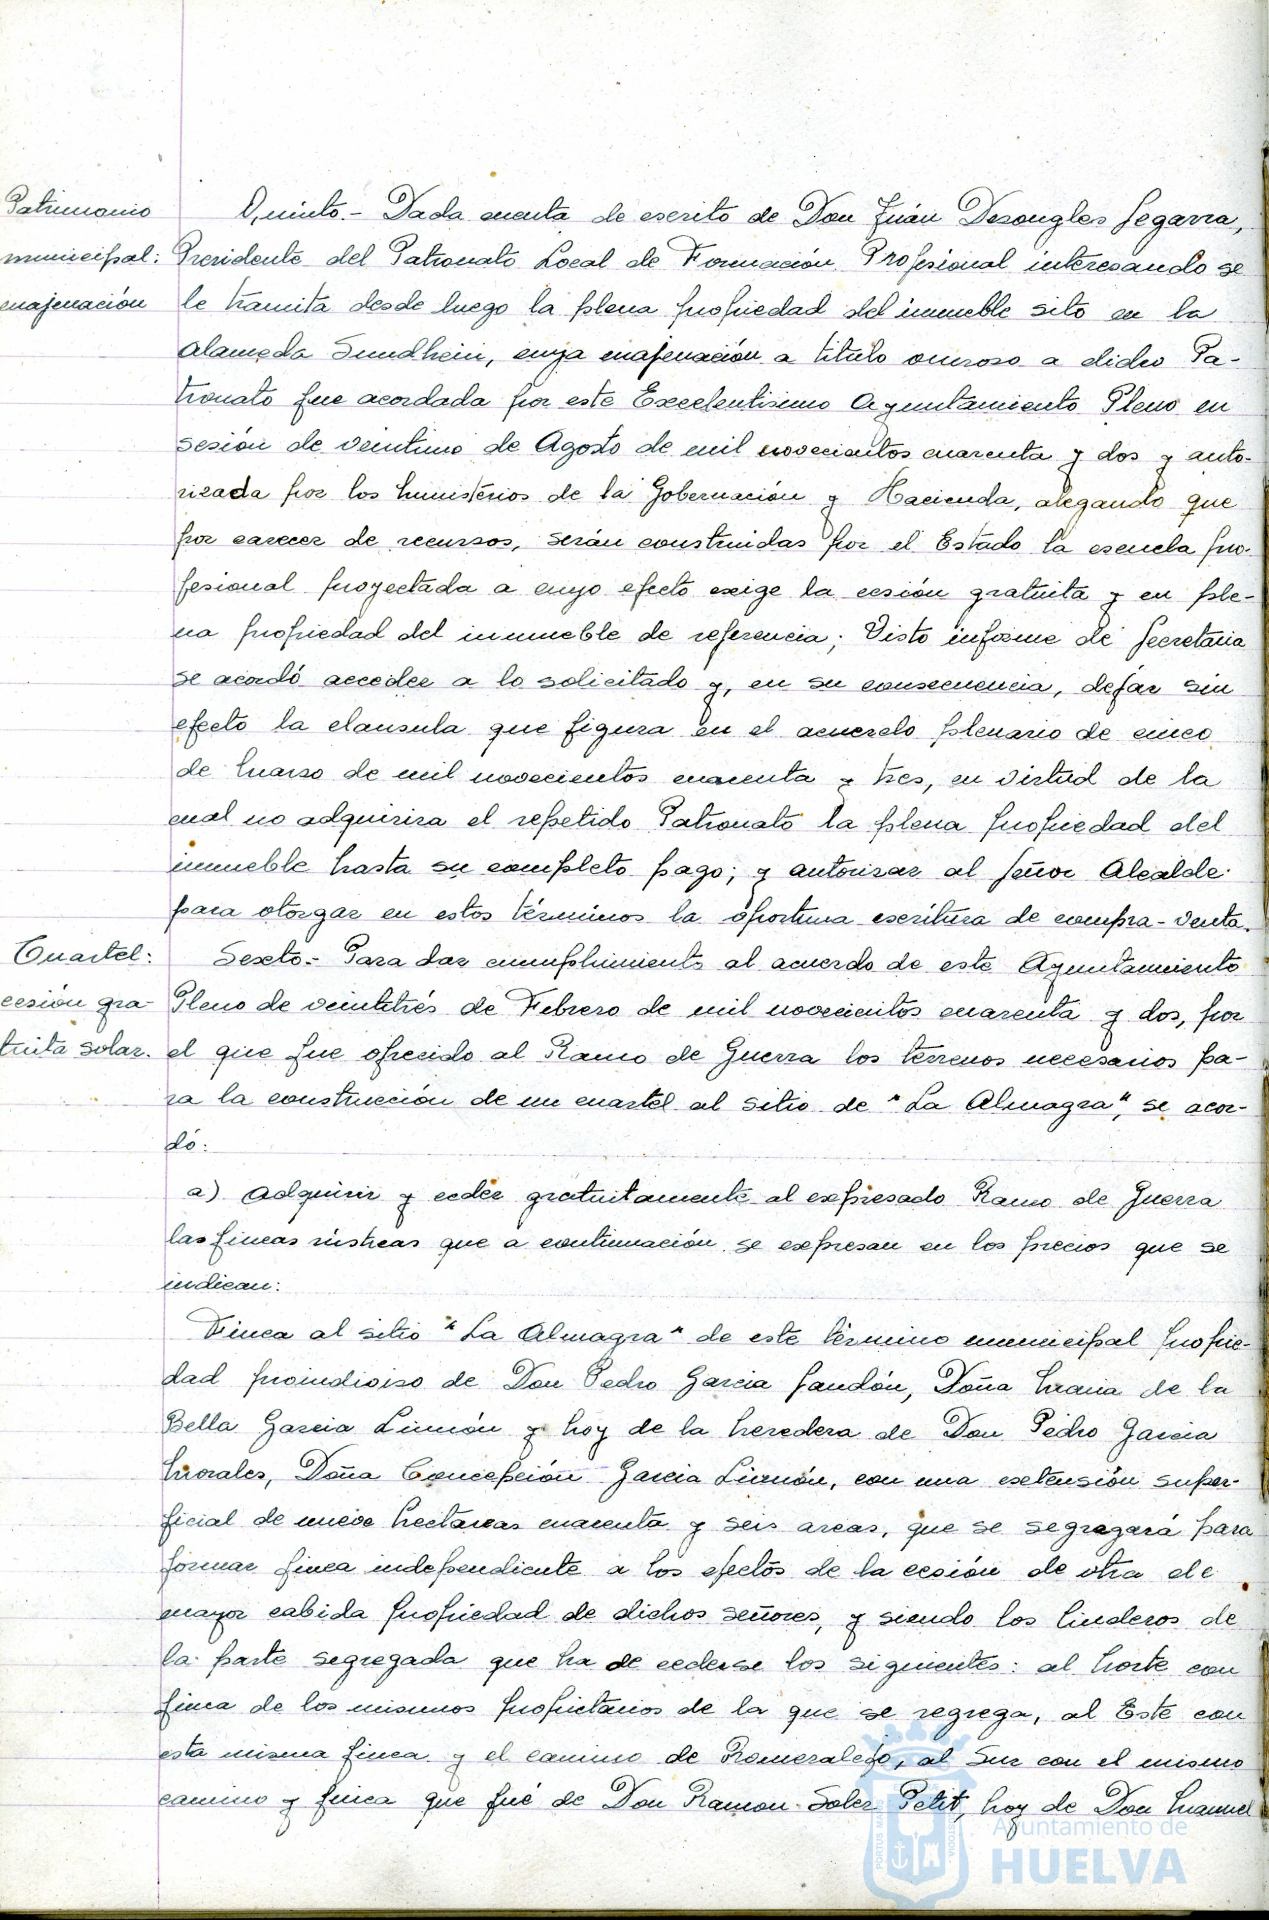 Patrimonio
municipal:
enajenación
Quinto.- Dada cuenta de escrito de Don Juán Desongles Segarra,
Presidente del Patronato Local de Formación Profesional interesando se
le tramita desde luego la plena propiedad del inmueble sito en la
Alameda Sundhein, cuya enajenación a título oneroso a dicho Pa-
tronato fue acordada por este Excelentísimo Ayuntamiento Pleno en
sesión de veintiuno de Agosto de mil novecientos cuarenta y dos y auto-
rizada por los Ministérios de la Gobernación y Hacienda, alegando que
por carecer de recursos, serán construidas por el Estado la escuela pro-
fesional proyectada a cuyo efecto exige la cesión gratuita y en ple-
na propiedad del inmueble de referencia; Visto informe de Secretaria
se acordó acceder a lo solicitado y, en su consecuencia, dejar sin
efecto la clausula que figura en el acuerdo plenario de cinco
de Marzo de mil novecientos cuarenta y tres, en virtud de la
cual no adquirira el repetido Patronato la plena propiedad del
inmueble hasta su completo pago; y autorizar al Señor Alcalde
para otorgar en estos términos la oportuna escritura de compra-venta.
Cuartel:
cesión gra-
tuita solar.
Sexto.- Para dar cumplimiento al acuerdo de este Ayuntamiento
Pleno de veintitrés de Febrero de mil novecientos cuarenta y dos, por
el que fue ofrecido al Ramo de Guerra los terrenos necesarios pa-
ra la construcción de un cuartel al sitio de "La Almagra", se acor-
dó:
a) Adquirir y ceder gratuitamente al expresado Ramo de Guerra
las fincas rústicas que a continuación se expresan en los precios que se
indican:
Finca al sitio "La Almagra" de este término municipal propie-
dad proindiviso de Don Pedro Garcia Jandón, Doña Maria de la
Bella Garcia Limón y hoy de la heredera de Don Pedro Garcia
Morales, Doña Concepción Garcia Limón, con una extensión super-
ficial de nueve hectareas cuarenta y seis areas, que se segregará para
formar finca independiente a los efectos de la cesión de otra de
mayor cabida propiedad de dichos señores, y siendo los linderos de
la parte segregada que ha de cederse los siguientes: al Norte con
finca de los mismos propietarios de la que se regrega, al Este con
esta misma finca y el camino de Romeralejo, al Sur con el mismo
camino y finca que fué de Don Ramon Soler Petit, hoy de Don Manuel
PORTUS MARIS
CUSTODIA
Ayuntamiento de
HUELVA